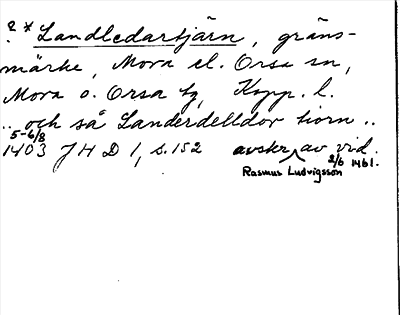 ? * Landledartjärn, gräns-
märke, Mora el. Orsa sn,
Mora o. Orsa tg, Kopp. l.
.. och så Landerdelldor tiorn ..
5-6/8
1403 JHD 1, s. 152 avskr. av vid.
Rasmus Ludvigsson 2/6 1461.